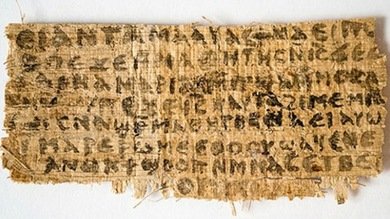 ⲉⲓ ⲁⲛ ⲧⲁⲙⲁⲁⲩ ⲁⲥϯ ⲛⲁⲉⲓ ⲡⲱ
ⲡⲉϫⲉ ⲙⲙⲁⲑⲏⲧⲏⲥ ⲛⲓ̅ⲥ̅ ϫⲉ
ⲁⲣⲛⲁ ⲙⲁⲣⲓⲁⲙ ⲙⲡϣⲁ ⲙⲙⲟⲥ ⲁ
ⲡⲉϫⲉ ⲓ̅ⲥ̅ ⲛⲁⲩ ⲧⲁϩⲓⲙⲉ ⲙⲛ
ⲥⲛⲁϣⲣⲙⲁⲑⲏⲧⲏⲥ ⲛⲁⲉⲓ ⲁⲩⲱ
ⲙⲁⲣⲉⲣⲱⲙⲉ ⲉⲑⲟⲟⲩ ϣⲁϥⲉ ⲛⲉ
ⲁⲛⲟⲕ ϯϣⲟⲟⲡ ⲛⲙⲙⲁⲥ ⲉⲧⲃⲉ